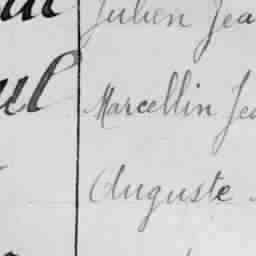 Julien Jea
ul Marcellin Jea
Auguste